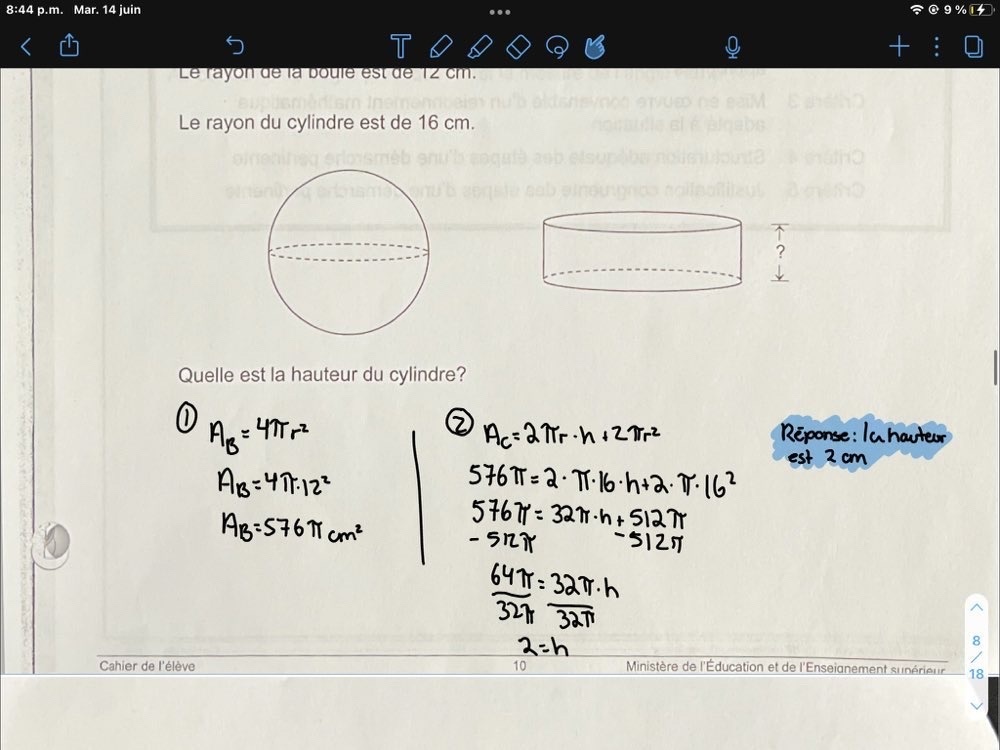 8:44 p.m. Mar. 14 juin
9 %
Le rayon de la boule est de 12 cm.
Le rayon du cylindre est de 16 cm.
?
Quelle est la hauteur du cylindre?
① A_B = 4πr²
A_B = 4π·12²
A_B = 576π cm²
② A_C = 2πr·h + 2πr²
576π = 2·π·16·h + 2·π·16²
576π = 32π·h + 512π
- 512π - 512π
64π = 32π·h
32π 32π
2 = h
Réponse: la hauteur
est 2 cm
Cahier de l'élève 10 Ministère de l'Éducation et de l'Enseignement supérieur
8
/
18